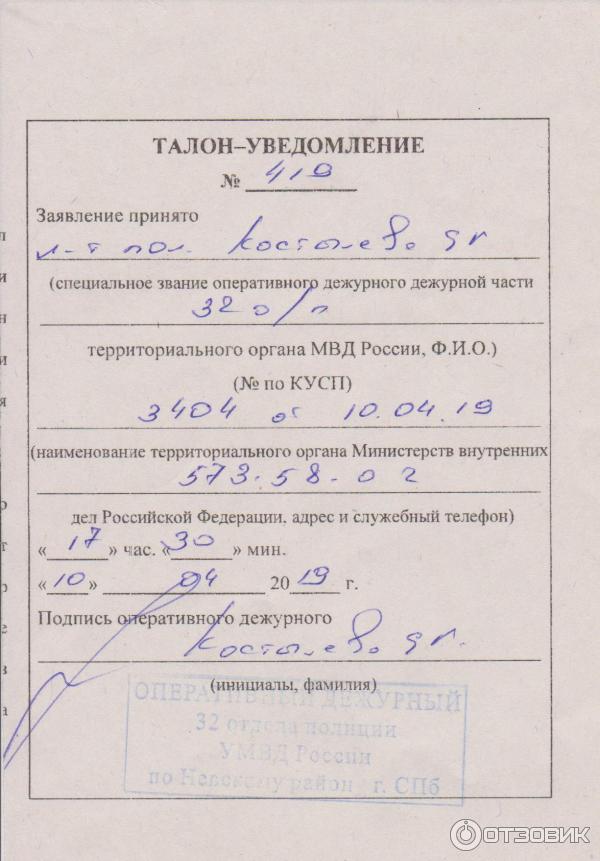 ТАЛОН–УВЕДОМЛЕНИЕ
№ 419
Заявление принято
л-т пол. Костылев
(специальное звание оперативного дежурного дежурной части
32 о/п
территориального органа МВД России, Ф.И.О.)
(№ по КУСП)
3404 от 10.04.19
(наименование территориального органа Министерств внутренних
573-58-02
дел Российской Федерации, адрес и служебный телефон)
«17» час. «30» мин.
«10» 04 2019 г.
Подпись оперативного дежурного
Костылев
(инициалы, фамилия)
ОПЕРАТИВНЫЙ ДЕЖУРНЫЙ
32 отдела полиции
УМВД России
по Невскому району г. СПб
ОТЗОВИК